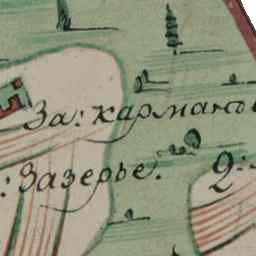 За: карманъ
: Зазерье.